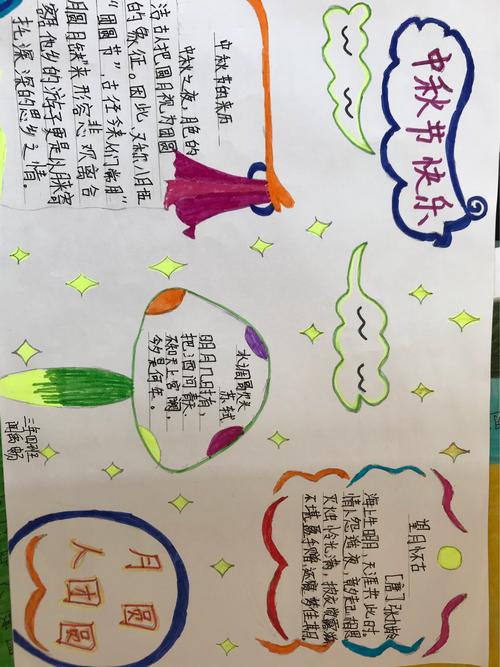 中秋节快乐
中秋节的来历
中秋之夜,月色的
洁古把圆月视为团圆
的象征。因此,又称八月五
“团圆节”,古仔今来人们常用“
月圆月缺”来形容悲欢离合
他乡的游子更是以月来寄
托深深的思乡之情。
水调歌头
苏轼
明月几时有,
把酒问青天
不知天上宫阙,
今夕是何年。
三年四班
望月怀古
[唐]张九龄
海上生明月,天涯共此时
情人怨遥夜,竟夕起相思
灭烛怜光满,披衣觉露滋
不堪盈手赠,还寝梦佳期
月圆
人团圆